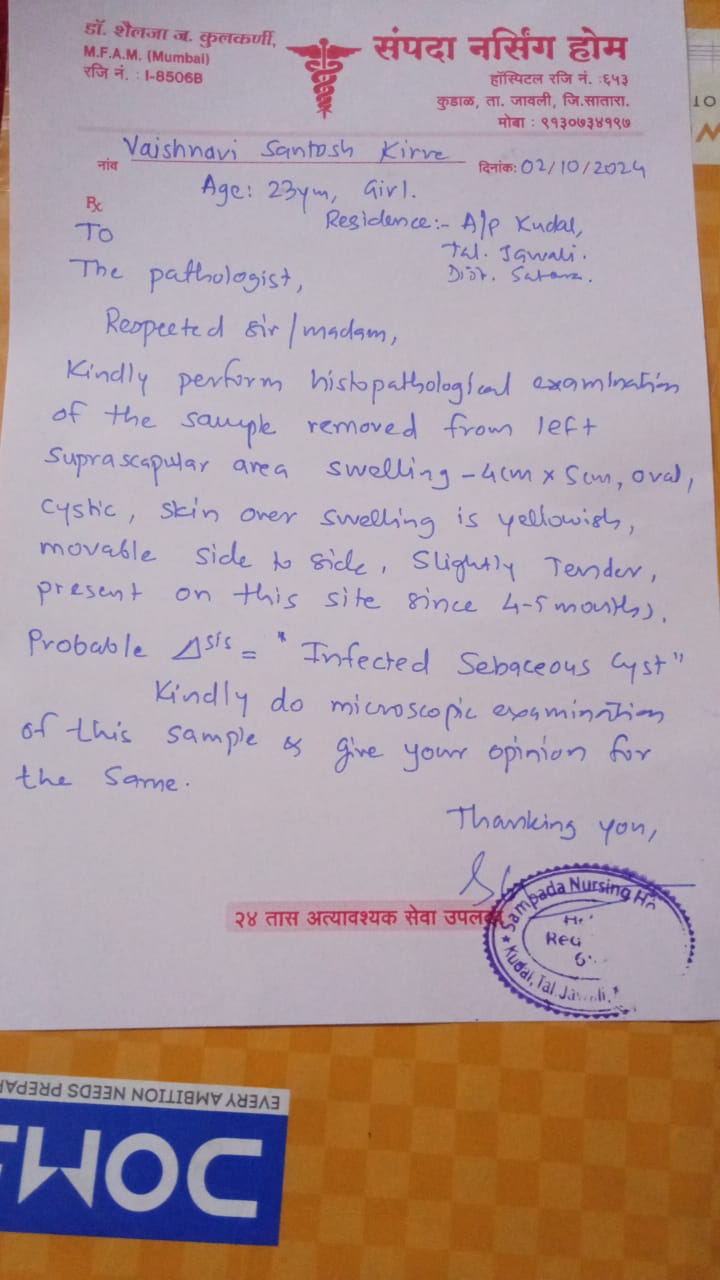 डॉ. शैलजा ज. कुलकर्णी,
M.F.A.M. (Mumbai)
रजि नं. : I-8506B
संपदा नर्सिंग होम
हॉस्पिटल रजि नं. :६५३
कुडाळ, ता. जावली, जि.सातारा.
मोबा : ९१३०७३४१९७
नांव Vaishnavi Santosh Kirve दिनांक: 02/10/2024
Age: 23ym, Girl.
Rx
Residence:- A/p Kudal,
Tal. Jawali.
Dist. Satara.
To
The pathologist,
Respected sir/madam,
Kindly perform histopathological examination
of the sample removed from left
suprascapular area swelling - 4cm x 5cm, oval,
cystic, skin over swelling is yellowish,
movable side to side, slightly Tender,
present on this site since 4-5 months.
Probable Δsis = "Infected Sebaceous Cyst"
Kindly do microscopic examination
of this sample & give your opinion for
the same.
Thanking you,
२४ तास अत्यावश्यक सेवा
Sampada Nursing
Reg
Kudal, Tal.
EVERY AMBITION NEEDS
DOM
OT